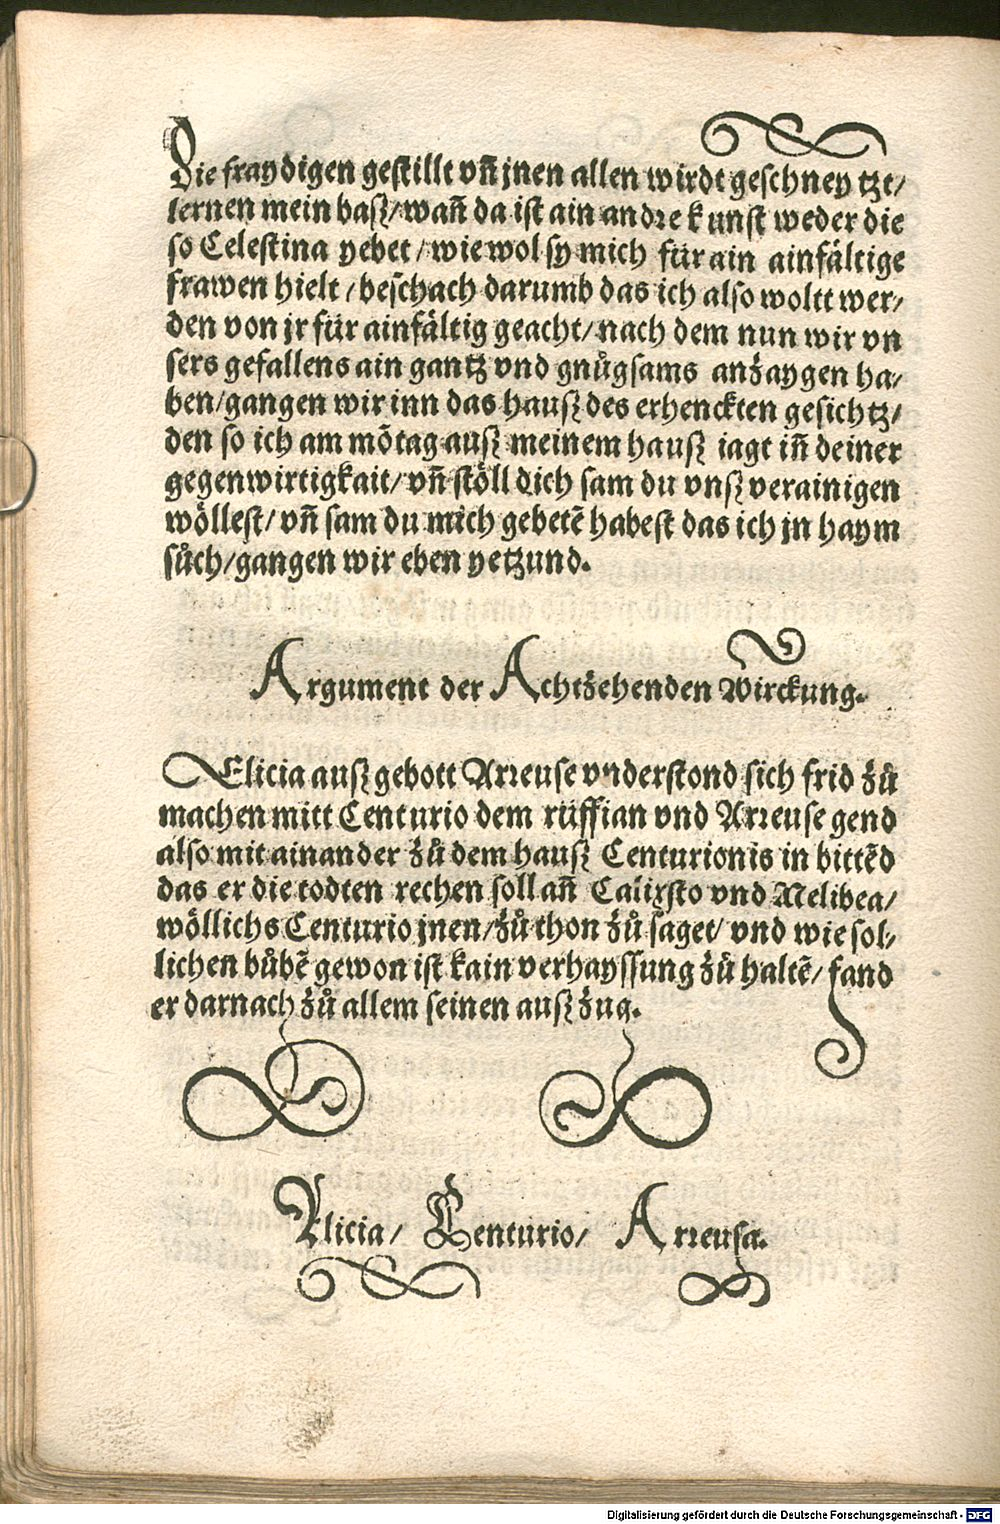 Die fraydigen gestillt vñ jnen allen wirdt geschneytzt/
lernen mein baß/wañ da ist ain andre kunst weder die
so Celestina yebet/wiewol sy mich für ain ainfältige
frawen hielt/beschach darumb das ich also woltt wer/
den von jr für ainfältig geacht/nach dem nun wir vn
sers gefallens ain gantz vnd gnůgsams anzaygen ha/
ben/gangen wir inn das hauß des erhenckten gesichtz/
den so ich am mõtag auß meinem hauß iagt iñ deiner
gegenwirtigkait/vñ stöll dich sam du vnß verainigen
wöllest/vñ sam du mich gebetẽ habest das ich jn haym
sůch/gangen wir eben yetzund.
Argument der Achtzehenden Wirckung.
Elicia auß gebott Arreuse vnderstond sich frid zů
machen mitt Centurio dem rüffian vnd Arreuse gend
also mit ainander zů dem hauß Centurionis in bittẽd
das er die todten rechen soll añ Calixsto vnd Melibea/
wöllichs Centurio jnen/zů thon zů saget/vnd wie sol/
lichen bůbẽ gewon ist kain verhayssung zů haltẽ/fand
er darnach zů allem seinen außzug.
Alicia/ Centurio/ Arreusa.
Digitalisierung gefördert durch die Deutsche Forschungsgemeinschaft - DFG